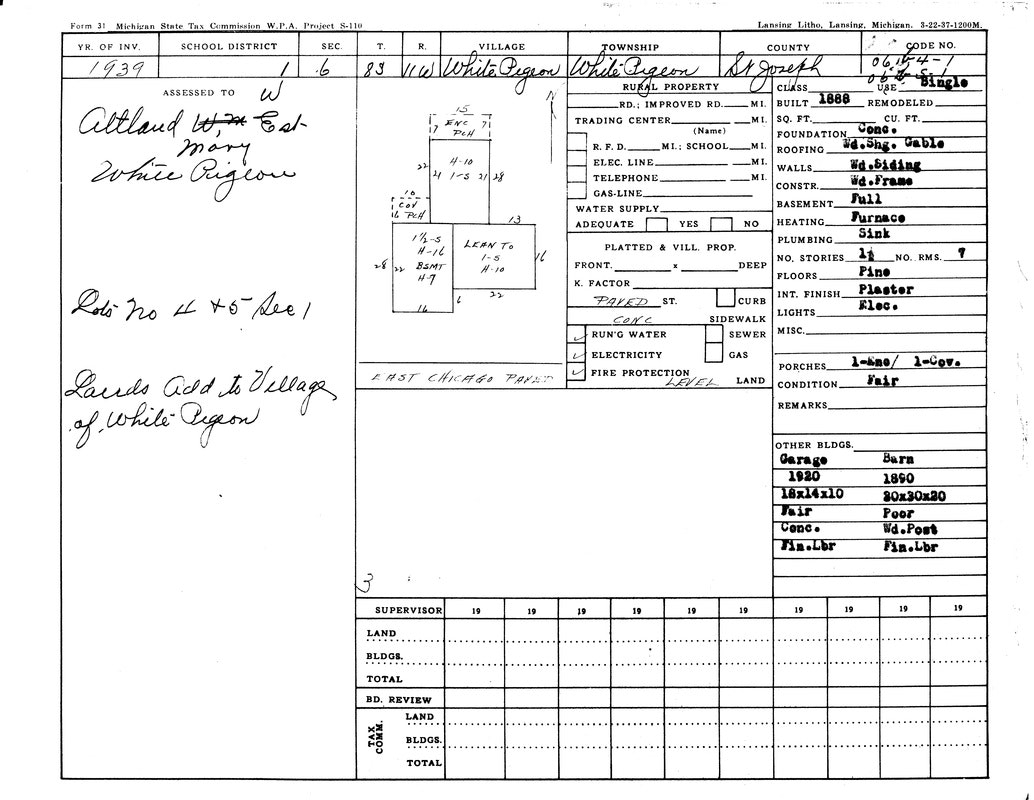 Form 31 Michigan State Tax Commission W.P.A. Project S-110
Lansing Litho, Lansing, Michigan. 3-22-37-1200M.
YR. OF INV. SCHOOL DISTRICT SEC. T. R. VILLAGE TOWNSHIP COUNTY CODE NO.
1939 1 6 8S 11W White Pigeon White Pigeon St Joseph
ASSESSED TO W
Altland W.M. Est
Mary
White Pigeon
Lots No 4 + 5 Sec 1
Lands Add to Village
of White Pigeon
N
15
7 ENC 7
PCH
22 H-10
21 1-5 21 28
10
COV
6 PCH
13
1½-5
H-16
28 22 BSMT
H-9
16
LEAN TO
1-5
H-10
16
6 22
EAST CHICAGO PAVED
3
RURAL PROPERTY
RD.; IMPROVED RD. MI.
TRADING CENTER MI.
(Name)
R. F. D. MI.; SCHOOL MI.
ELEC. LINE MI.
TELEPHONE MI.
GAS-LINE
WATER SUPPLY
ADEQUATE YES NO
PLATTED & VILL. PROP.
FRONT. x DEEP
K. FACTOR
PAVED ST. CURB
CONC SIDEWALK
✓ RUN'G WATER SEWER
✓ ELECTRICITY GAS
✓ FIRE PROTECTION
LEVEL LAND
CLASS USE Single
BUILT 1888 REMODELED
SQ. FT. CU. FT.
FOUNDATION Conc.
ROOFING Wd.Shg. Gable
WALLS Wd.Siding
CONSTR. Wd.Frame
BASEMENT Full
HEATING Furnace
PLUMBING Sink
NO. STORIES 1½ NO. RMS. 9
FLOORS Pine
INT. FINISH Plaster
LIGHTS Elec.
MISC.
PORCHES 1-Enc/ 1-Cov.
CONDITION Fair
REMARKS
OTHER BLDGS.
Garage Barn
1920 1890
18x14x10 20x30x20
Fair Poor
Conc. Wd.Post
Fin.Lbr Fin.Lbr
SUPERVISOR 19 19 19 19 19 19 19 19 19 19
LAND
BLDGS.
TOTAL
BD. REVIEW
TAX COMM.
LAND
BLDGS.
TOTAL